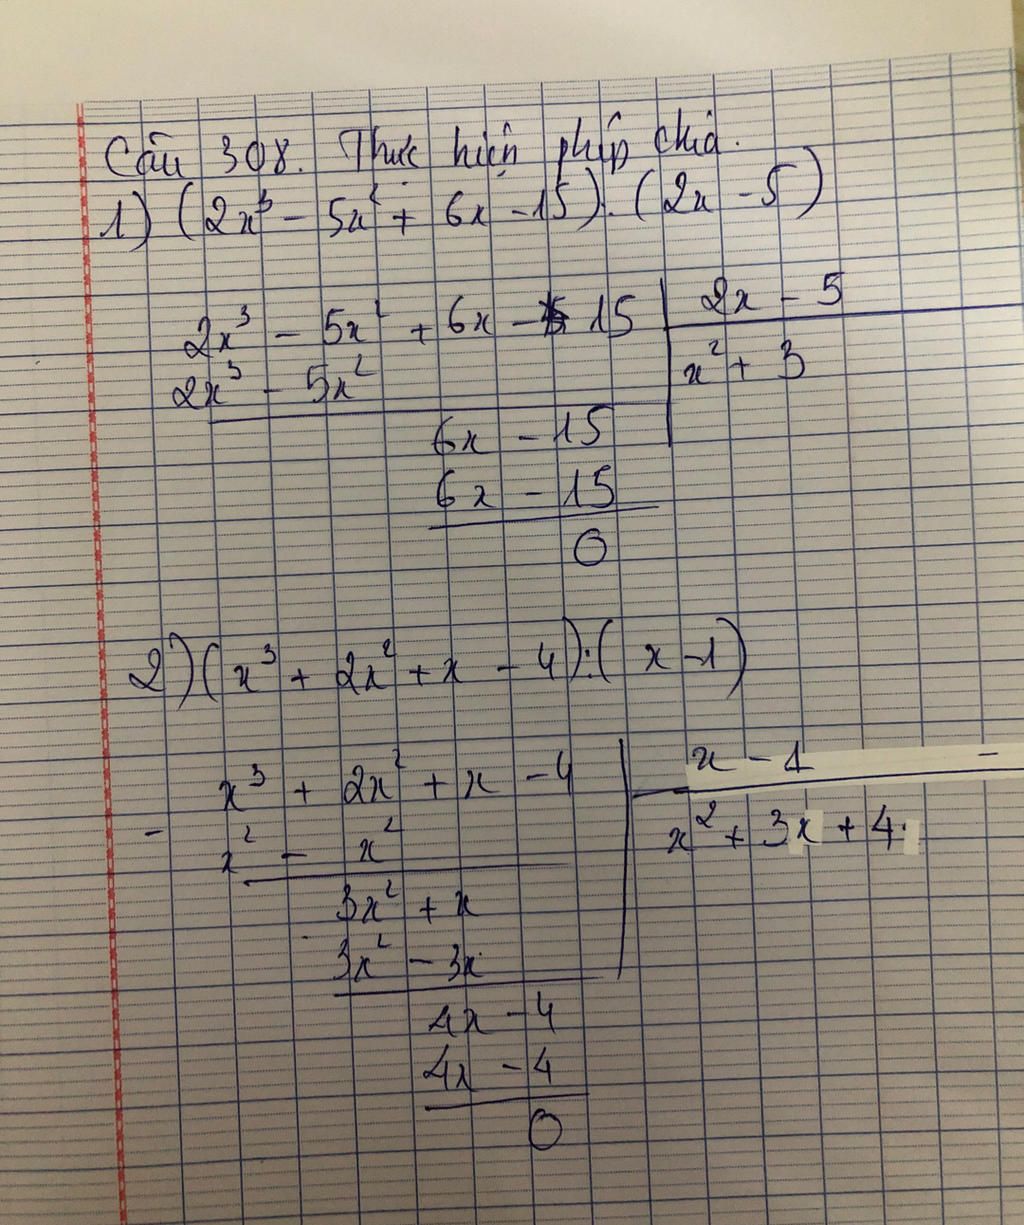 Câu 308. Thực hiện phép chia.
1) (2x³ - 5x² + 6x - 15) : (2x - 5)
2x³ - 5x² + 6x - 15 2x - 5
2x³ - 5x² x² + 3
6x - 15
6x - 15
0
2) (x³ + 2x² + x - 4) : (x - 1)
x³ + 2x² + x - 4 x - 1 -
- x² - x² x² + 3x + 4.
3x² + x
3x² - 3x
4x - 4
4x - 4
0